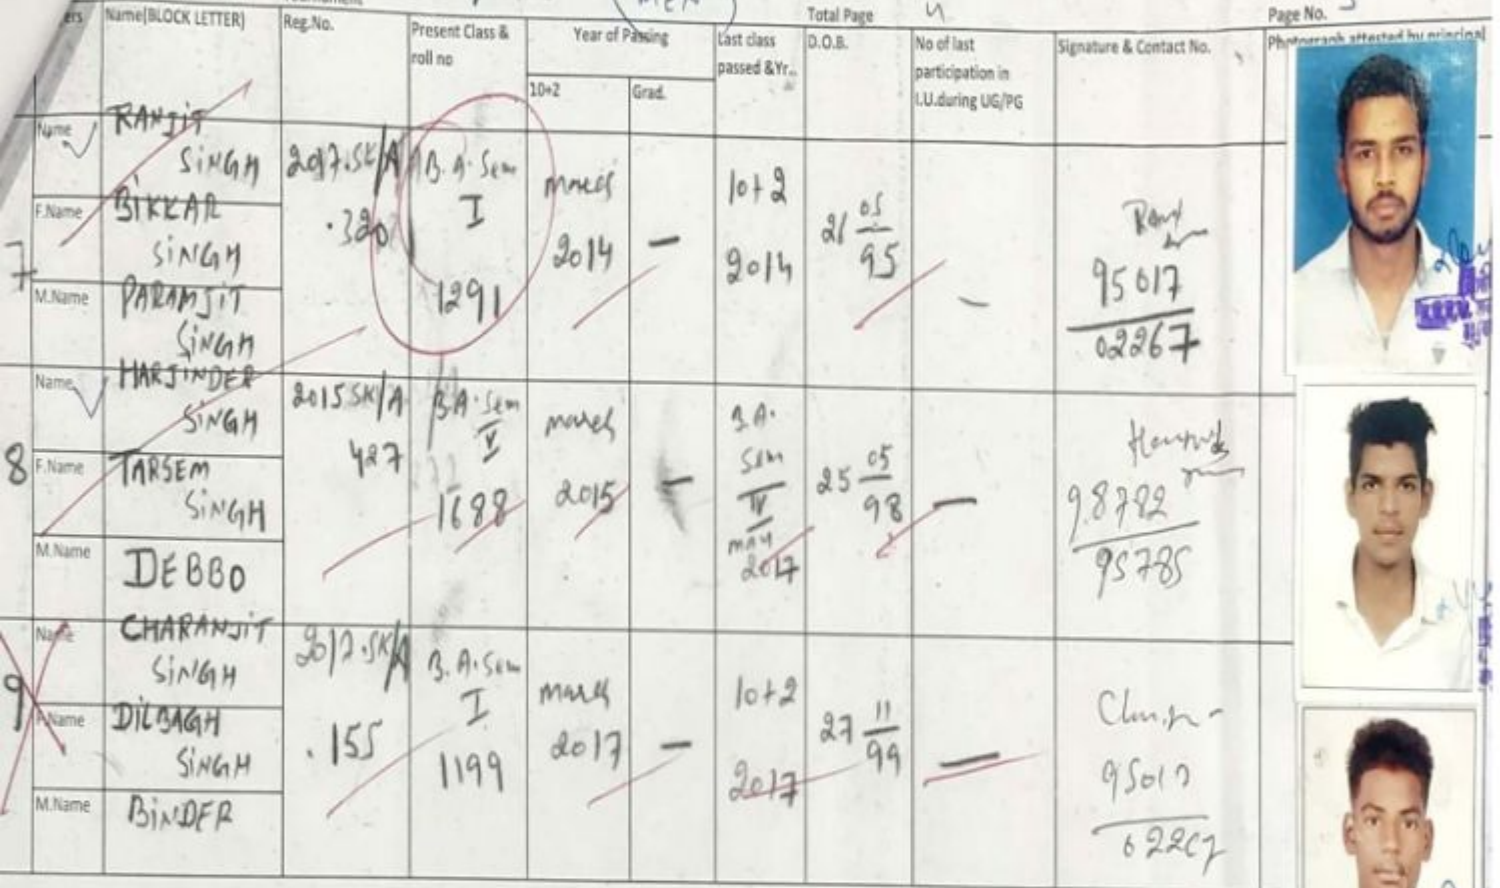 MEN
Total Page 4
Page No.
ers
Name(BLOCK LETTER)
Reg.No.
Present Class &
roll no
Year of Passing
10+2
Grad.
Last class
passed &Yr..
D.O.B.
No of last
participation in
I.U.during UG/PG
Signature & Contact No.
Photograph attested by principal
7
Name
RANJIT
SINGH
F.Name
BIKKAR
SINGH
M.Name
PARAMJIT
SINGH
2017.SK/A
.320
B.A. Sem
I
1291
march
2014
—
10+2
2014
21 05
95
—
95017
02267
8
Name
HARJINDER
SINGH
F.Name
TARSEM
SINGH
M.Name
DEBBO
2015 SK/A
427
B.A. Sem
V
1688
march
2015
—
B.A.
Sem
IV
may
2017
25 05
98
—
98782
95785
9
Name
CHARANJIT
SINGH
F.Name
DILBAGH
SINGH
M.Name
BINDER
2017.SK/A
.155
B.A. Sem
I
1199
march
2017
—
10+2
2017
27 11
99
—
95017
02267